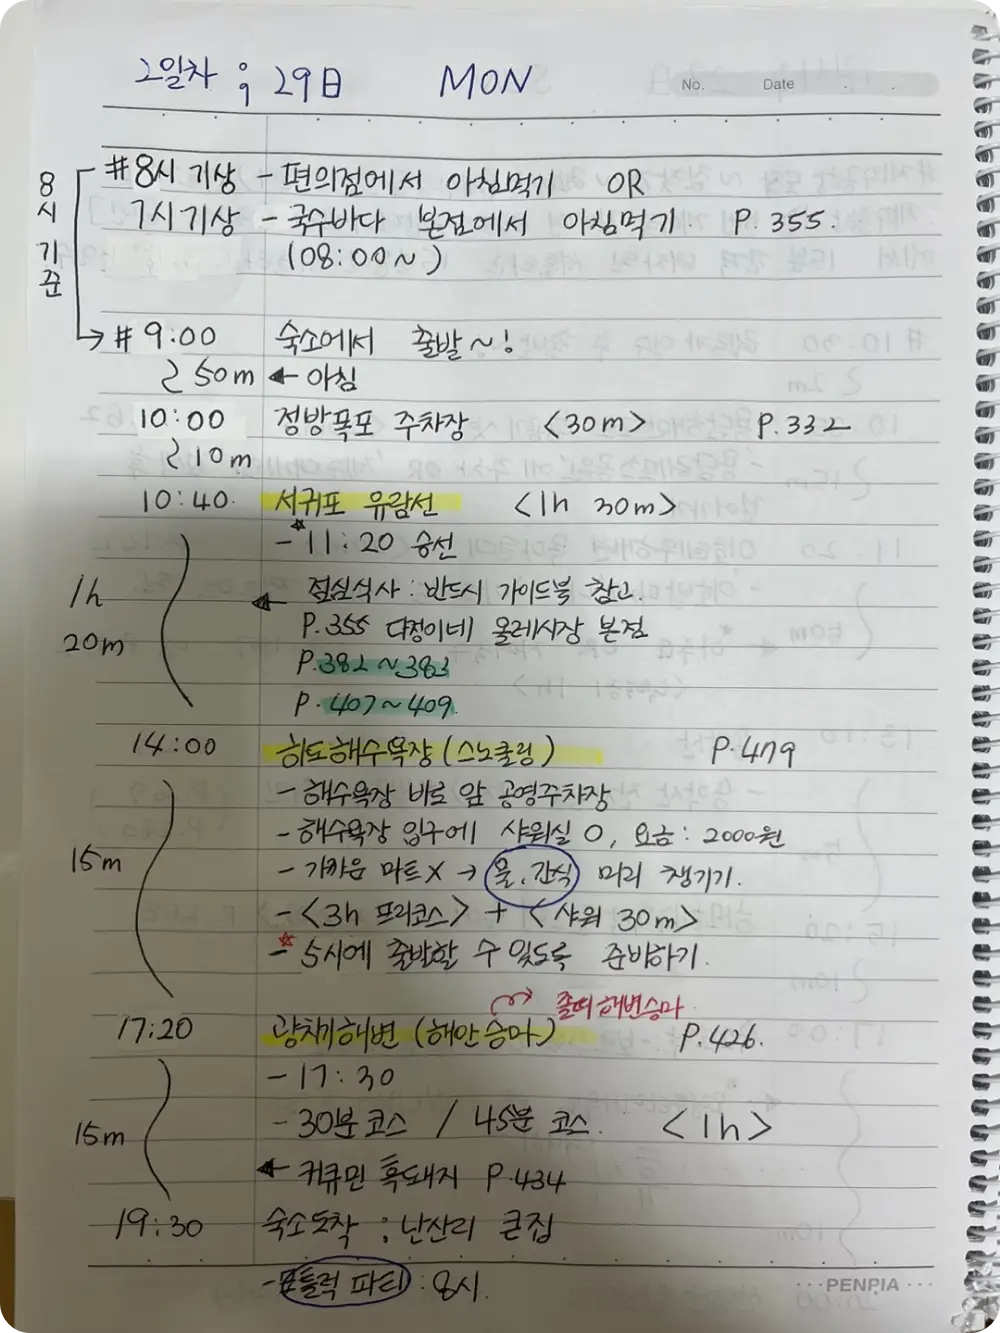 2일차 ; 29日 MON
No. Date
8시 기준
#8시 기상 - 편의점에서 아침먹기 OR
7시 기상 - 국수바다 본점에서 아침먹기. P. 355.
(08:00~)
# 9:00 숙소에서 출발~!
50m ← 아침
10:00 정방폭포 주차장 <30m> P.332
10m
10:40. 서귀포 유람선 <1h 30m>
- 11:20 승선
1h 20m
점심식사 : 반드시 가이드북 참고.
P.355 다정이네 올레시장 본점
P.382~383
P.407~409.
14:00 하도해수욕장 (스노쿨링) P.479
- 해수욕장 바로 앞 공영주차장
- 해수욕장 입구에 샤워실 O, 요금: 2000원
15m
- 가까운 마트X → 물, 간식 미리 챙기기.
- <3h 프리코스> + <샤워 30m>
- 5시에 출발할 수 있도록 준비하기.
해변승마
17:20 광치기해변 (해안승마) P.426.
- 17:30
- 30분 코스 / 45분 코스. <1h>
15m
← 커큐민 흑돼지 P.434
19:30 숙소도착 ; 난산리 큰집
- 포틀럭 파티 : 8시.
PENPIA